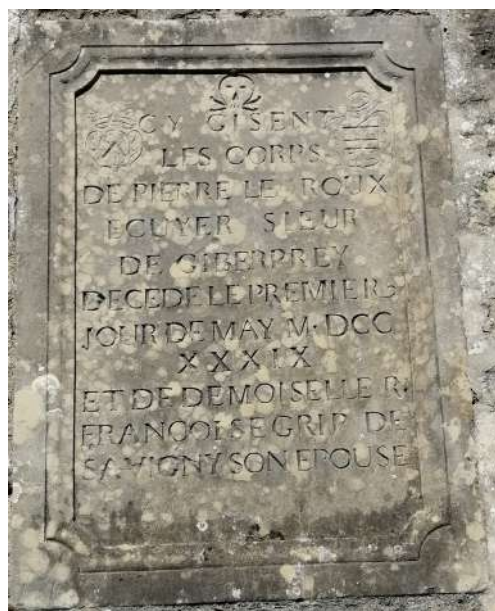 CY GISENT
LES CORPS
DE PIERRE LE ROUX
ECUYER SIEUR
DE GIBERPREY
DECEDE LE PREMIER
JOUR DE MAY M·DCC
XXXIX
ET DE DEMOISELLE R.
FRANCOISE GRIP DE
SAVIGNY SON EPOUSE